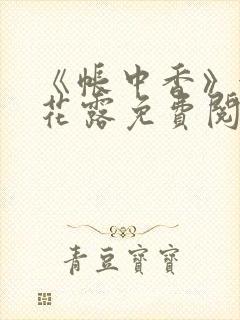 《帐中香》
花露免費閱
青豆寶寶